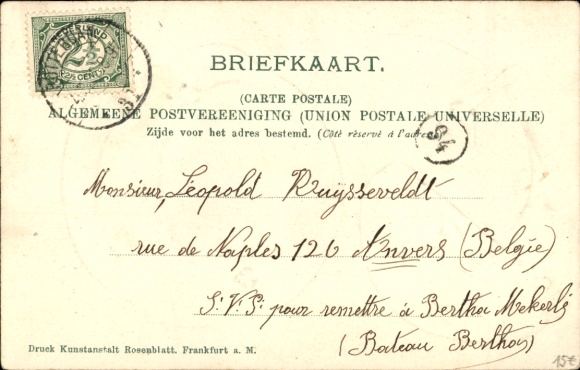 NEDERLAND
2½
2½ CENT 2½
ROTTERDAM
BRIEFKAART.
(CARTE POSTALE)
ALGEMEENE POSTVEREENIGING (UNION POSTALE UNIVERSELLE)
Zijde voor het adres bestemd. (Côté réservé à l'adresse)
94
Monsieur, Léopold Kruysseveldt
rue de Naples 126 Anvers (Belgie)
S. V. P. pour remettre à Bertha Mekerlé
(Bateau Bertha)
Druck Kunstanstalt Rosenblatt, Frankfurt a. M.
15€